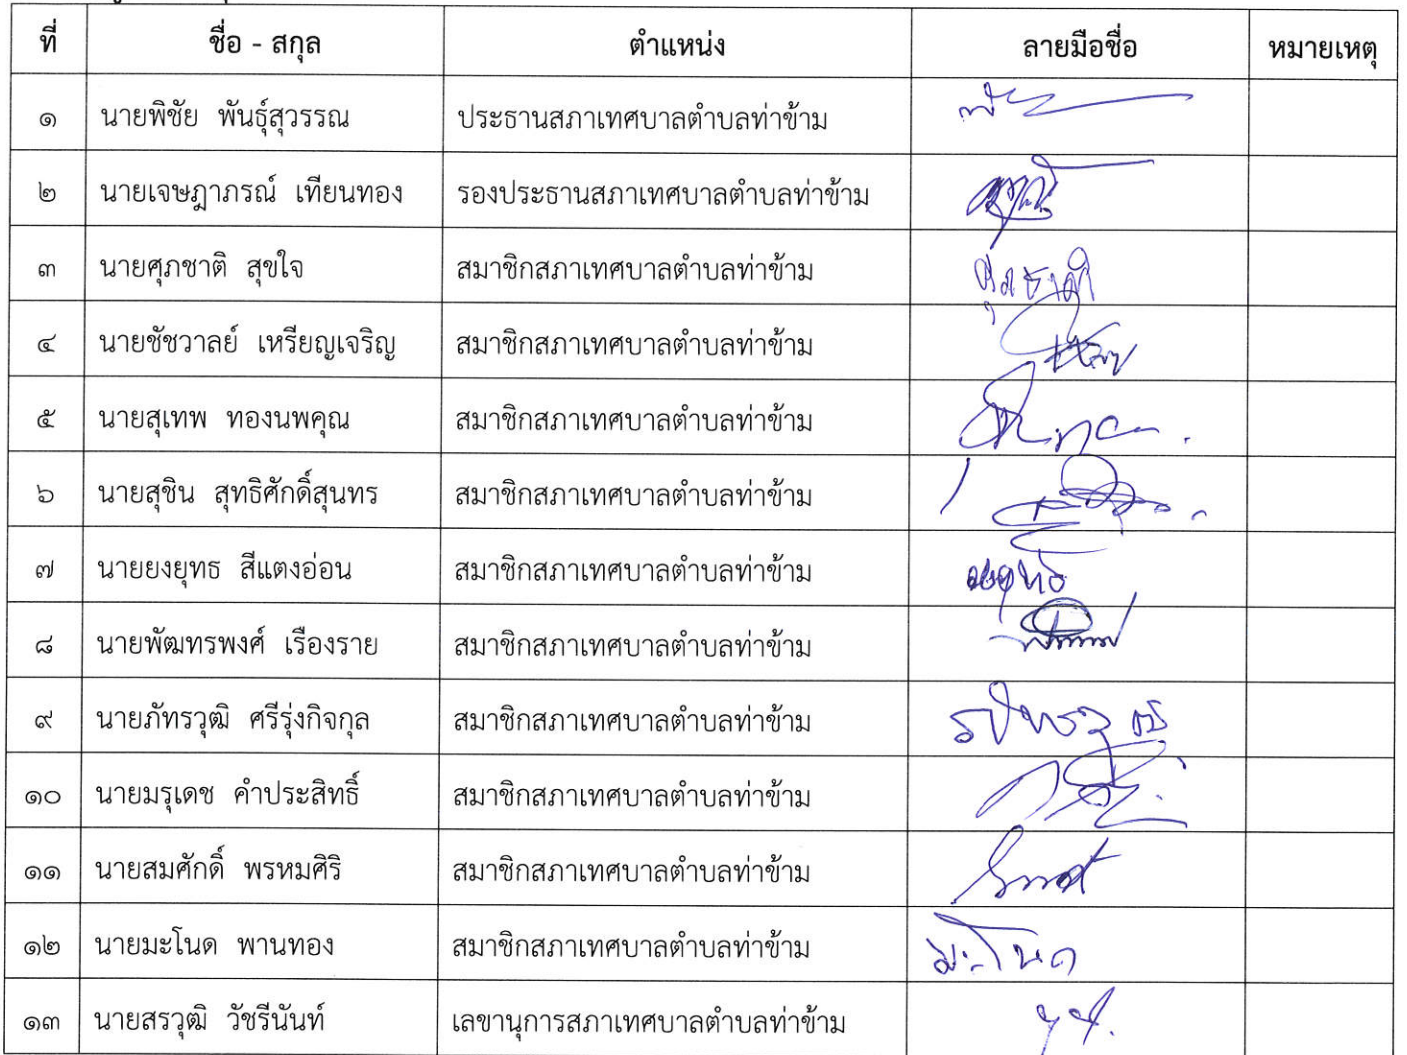 ที่ ชื่อ - สกุล ตำแหน่ง ลายมือชื่อ หมายเหตุ
๑ นายพิชัย พันธุ์สุวรรณ ประธานสภาเทศบาลตำบลท่าข้าม
๒ นายเจษฎาภรณ์ เทียนทอง รองประธานสภาเทศบาลตำบลท่าข้าม
๓ นายศุภชาติ สุขใจ สมาชิกสภาเทศบาลตำบลท่าข้าม ศุภชาติ
๔ นายชัชวาลย์ เหรียญเจริญ สมาชิกสภาเทศบาลตำบลท่าข้าม
๕ นายสุเทพ ทองนพคุณ สมาชิกสภาเทศบาลตำบลท่าข้าม
๖ นายสุชิน สุทธิศักดิ์สุนทร สมาชิกสภาเทศบาลตำบลท่าข้าม
๗ นายยงยุทธ สีแตงอ่อน สมาชิกสภาเทศบาลตำบลท่าข้าม
๘ นายพัฒทรพงศ์ เรืองราย สมาชิกสภาเทศบาลตำบลท่าข้าม
๙ นายภัทรวุฒิ ศรีรุ่งกิจกุล สมาชิกสภาเทศบาลตำบลท่าข้าม ภัทรวุฒิ
๑๐ นายมรุเดช คำประสิทธิ์ สมาชิกสภาเทศบาลตำบลท่าข้าม
๑๑ นายสมศักดิ์ พรหมศิริ สมาชิกสภาเทศบาลตำบลท่าข้าม
๑๒ นายมะโนด พานทอง สมาชิกสภาเทศบาลตำบลท่าข้าม มะโนด
๑๓ นายสรวุฒิ วัชรีนันท์ เลขานุการสภาเทศบาลตำบลท่าข้าม